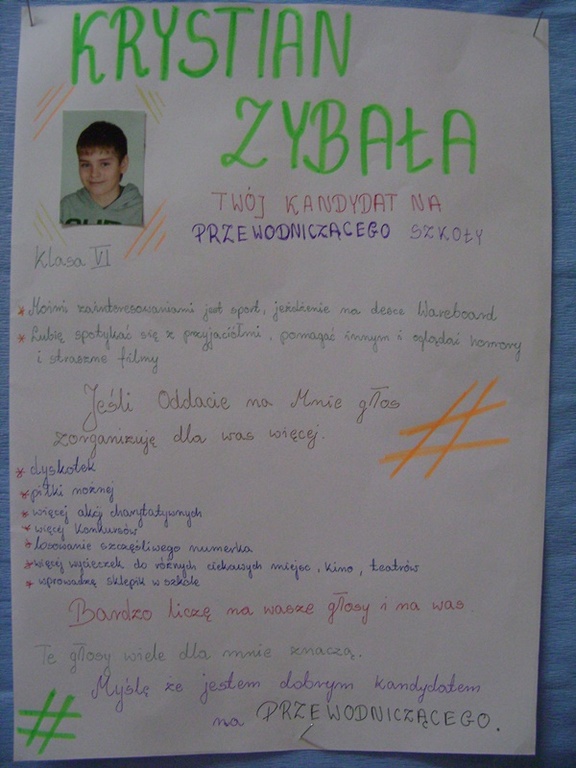 KRYSTIAN
ZYBAŁA
TWÓJ KANDYDAT NA
PRZEWODNICZĄCEGO SZKOŁY
Klasa VI
* Moimi zainteresowaniami jest sport, jeżdżenie na desce Waveboard
* Lubię spotykać się z przyjaciółmi, pomagać innym i oglądać horrory
i straszne filmy
Jeśli Oddacie na Mnie głos
zorganizuję dla was więcej.
* dyskotek
* piłki nożnej
* więcej akcji charytatywnych
* więcej konkursów
* losowanie szczęśliwego numerka
* więcej wycieczek do różnych ciekawych miejsc, kino, teatrów
* wprowadzę sklepik w szkole
Bardzo liczę na wasze głosy i na was.
Te głosy wiele dla mnie znaczą.
Myślę że jestem dobrym kandydatem
na PRZEWODNICZĄCEGO.